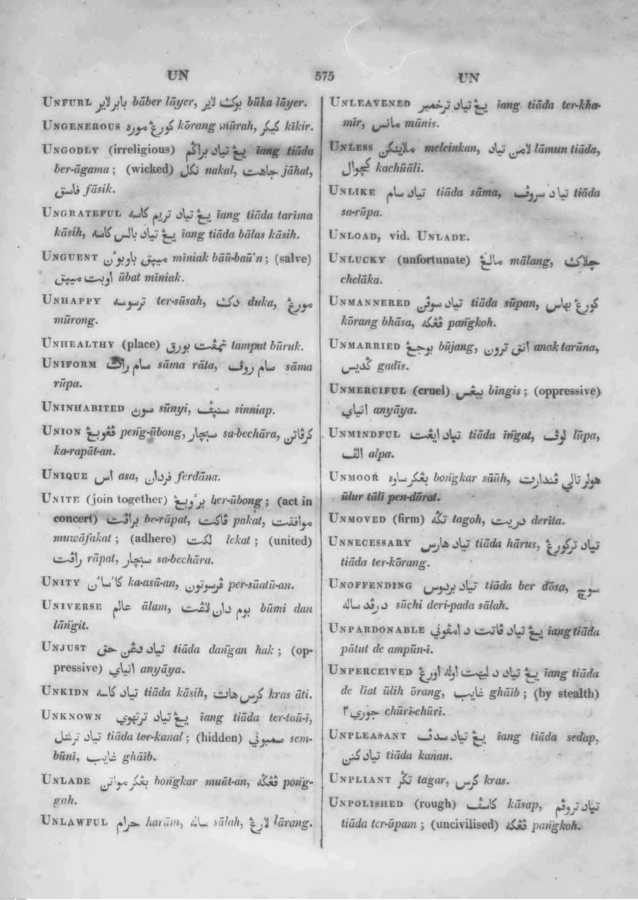 UN 575 UN
UNFURL بابر لاير bāber lāyer, بوك لاير būka lāyer.
UNGENEROUS كورڠ موره kōrang mūrah, كيكر kīkir.
UNGODLY (irreligious) يڠ تياد براݢم iang tiāda
ber-āgama; (wicked) نكل nakal, جاهت jāhat,
فاسق fāsik.
UNGRATEFUL يڠ تياد تريم كاسه iang tiāda tarīma
kāsih, يڠ تياد بالس كاسه iang tiāda bālas kāsih.
UNGUENT مينيق باوبوٴن mīniak bāū-baū'n; (salve)
اوبت مينيق ūbat mīniak.
UNHAPPY ترسوسه ter-sūsah, دك duka, مورڠ
mūrong.
UNHEALTHY (place) تمڤت بورق tampat būruk.
UNIFORM سام رات sāma rāta, سام روڤ sāma
rūpa.
UNINHABITED سوني sūnyi, سنيڤ sinniap.
UNION ڤڠوبڠ peng-ūbong, سبچار sa-bechāra, كرڤاتن
ka-rapāt-an.
UNIQUE اس asa, فردان ferdāna.
UNITE (join together) براوبڠ ber-ūbong; (act in
concert) براڤت be-rāpat, ڤاكت pakat, موافقت
muwāfakat; (adhere) لكت lekat; (united)
راڤت rāpat, سبچار sa-bechāra.
UNITY كاساٴن ka-asū-an, ڤرسوتون per-sūatū-an.
UNIVERSE عالم ālam, بوم دان لاڠت būmi dan
lāngit.
UNJUST تياد دڠن حق tiāda dangan hak; (op-
pressive) انياي anyāya.
UNKIDN تياد كاسه tiāda kāsih, كرس هات kras āti.
UNKNOWN يڠ تياد ترتهوي iang tiāda ter-taū-ī,
تياد تركنل tiāda ter-kanal; (hidden) سمبوني sem-
būni, غايب ghāib.
UNLADE بڠكر مواتن bongkar muāt-an, ڤڠݢه pong-
gah.
UNLAWFUL حرام harām, ساله sālah, لارڠ lārang.
UNLEAVENED يڠ تياد ترخمير iang tiāda ter-kha-
mīr, مانس mānis.
UNLESS ملاينكن meleinkan, لامن تياد lāmun tiāda,
كچوال kachūāli.
UNLIKE تياد سام tiāda sāma, تياد سروڤ tiāda
sa-rūpa.
UNLOAD, vid. UNLADE.
UNLUCKY (unfortunate) مالڠ mālang, چلاك
chelāka.
UNMANNERED تياد سوڤن tiāda sūpan, كورڠ بهاس
kōrang bhāsa, ڤڠكه pangkoh.
UNMARRIED بوجڠ būjang, انق ترون anak tarūna,
ݢديس gadis.
UNMERCIFUL (cruel) بيڠس bīngis; (oppressive)
انياي anyāya.
UNMINDFUL تياد ايڠت tiāda īngat, لوڤ lūpa,
الڤ alpa.
UNMOOR بڠكر ساوه bongkar sāūh, هولر تالي ڤندارت
ūlur tāli pen-dārat.
UNMOVED (firm) تݢه tagoh, دريت derīta.
UNNECESSARY تياد هارس tiāda hārus, تياد تركورڠ
tiāda ter-kōrang.
UNOFFENDING تياد بردوس tiāda ber dōsa, سوچ
درڤد ساله sūchi deri-pada sālah.
UNPARDONABLE يڠ تياد ڤاتت د امڤوني iang tiāda
pātut de ampūn-i.
UNPERCEIVED يڠ تياد د ليهت اوله اورڠ iang tiāda
de liat ūlih ōrang, غايب ghāib; (by stealth)
چوري٢ chūri-chūri.
UNPLEASANT يڠ تياد سدڤ iang tiāda sedap,
تياد كنن tiāda kanan.
UNPLIANT تݢر tagar, كرس kras.
UNPOLISHED (rough) كاسڤ kāsap, تياد تروڤم
tiāda ter-ūpam; (uncivilised) ڤڠكه pangkoh.